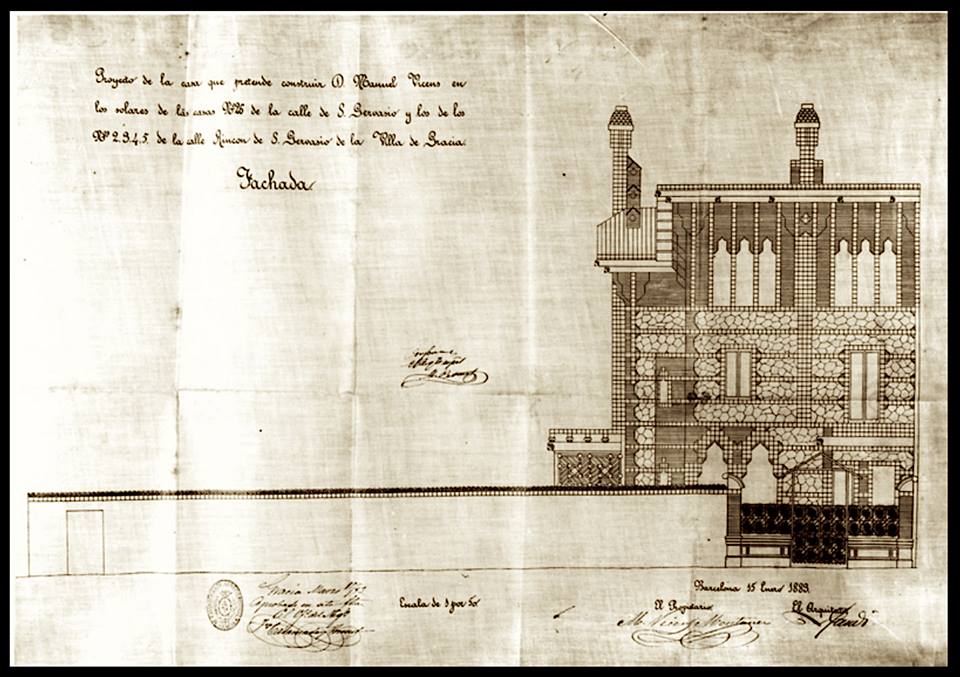 Proyecto de la casa que pretende construir D. Manuel Vicens en
los solares de las casas Nº26 de la calle de S. Gervasio y los de los
Nº 2.3.4.5. de la calle Rincon de S. Gervasio de la Villa de Gracia.
Fachada
Barcelona 15 Enero 1883.
Escala de 1 por 50
El Propietario
El Arquitecto
M. Vicens Montaner
Gaudí